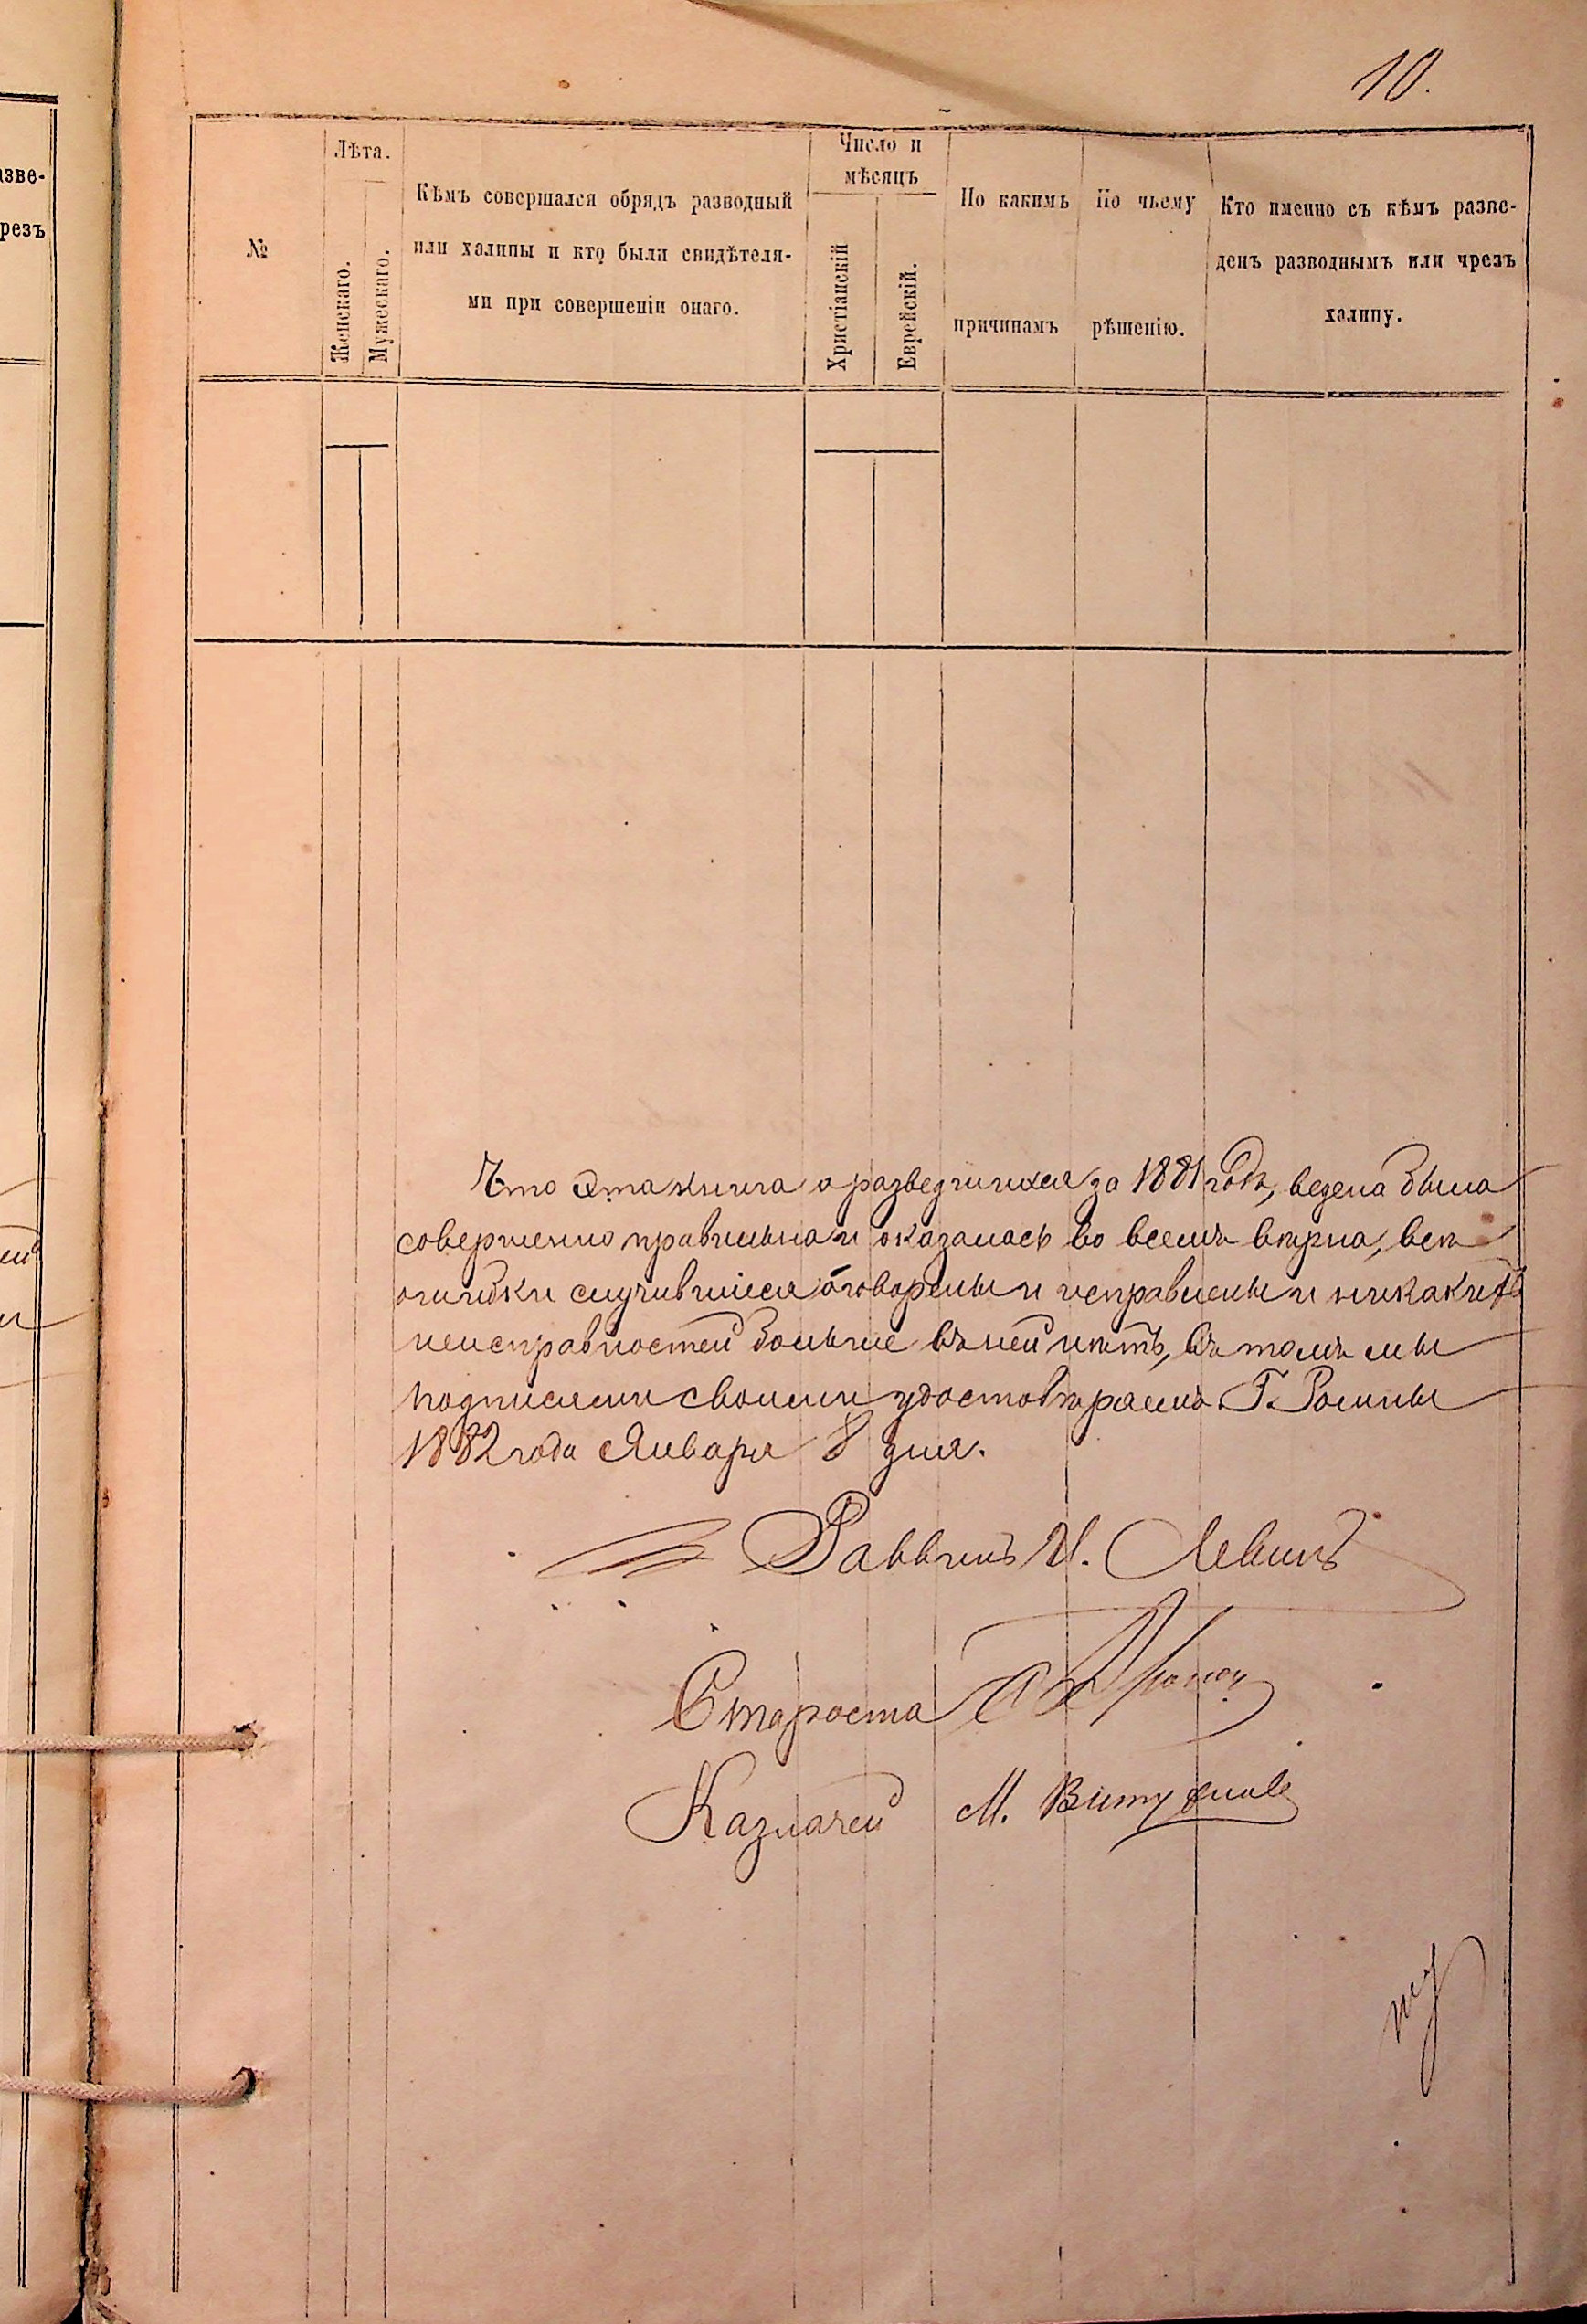 10.
Лѣта.
Число и
мѣсяцъ
№
Женскаго.
Мужескаго.
Кѣмъ совершался обрядъ разводный
или халицы и кто были свидѣтеля-
ми при совершеніи онаго.
Христіанскій
Еврейскій.
По какимъ
причинамъ
По чьему
рѣшенію.
Кто именно съ кѣмъ разве-
денъ разводнымъ или чрезъ
халицу.
азве-
резъ
Что эта книга о разведшихся за 1881 годъ, ведена была
совершенно правильна и оказалась во всемъ вѣрна, всѣ
ошибки случившіеся оговорены и исправлены и никакихъ
неисправностей больше въ ней нѣтъ, въ томъ мы
подписями своими удостовѣряемъ. Г. Ромны
1882 года Января 8 дня.
Раввинъ И. Левинъ
Староста
Казначей М.